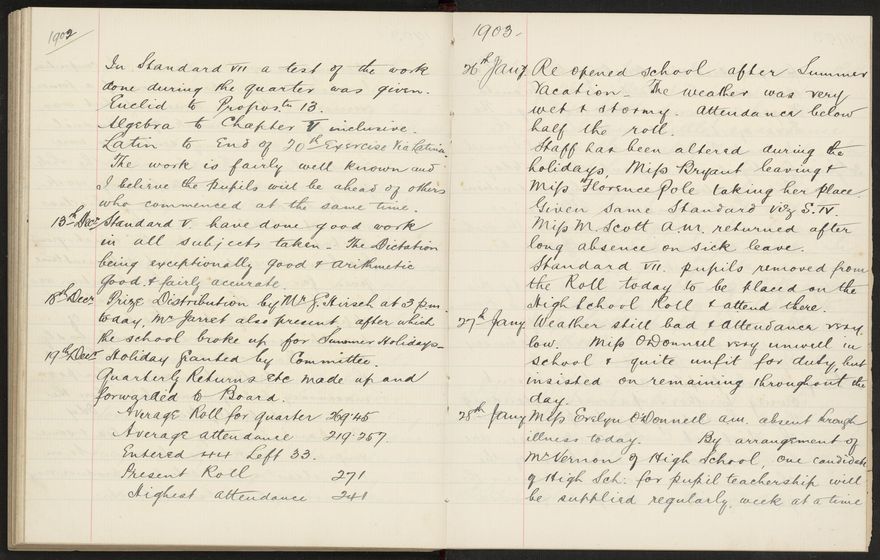 1902
In Standard VII a test of the work
done during the quarter was given.
Euclid to Proposn 13.
Algebra to Chapter V inclusive.
Latin to End of 20th Exercise Via Latina.
The work is fairly well known and
I believe the pupils will be ahead of others
who commenced at the same time.
13th Decr Standard V. have done good work
in all subjects taken - The Dictation
being exceptionally good & arithmetic
good & fairly accurate.
18th Decr Prize Distribution by Mr G. Hirsch at 3 pm
today, Mr Jarret also present, after which
the school broke up for Summer Holidays -
19th Decr Holiday granted by Committee.
Quarterly Returns etc made up and
forwarded to Board.
Average Roll for quarter 269.45
Average attendance 219.257
Entered Left 33.
Present Roll 271
Highest attendance 241
1903.
26th Jany Re opened school after Summer
Vacation - The weather was very
wet & stormy. Attendance below
half the roll.
Staff has been altered during the
holidays, Miss Bryant leaving &
Miss Florence Pole taking her place.
Given same Standard viz S. IV.
Miss M. Scott a.m. returned after
long absence on sick leave.
Standard VII. pupils removed from
the Roll today to be placed on the
High School Roll & attend there.
27th Jany Weather still bad & attendance very
low. Miss O'Donnell very unwell in
school & quite unfit for duty, but
insisted on remaining throughout the
day.
28th Jany Miss Evelyn O'Donnell a.m. absent through
illness today. By arrangement of
Mr Vernon of High School, one candidate
of High Sch. for pupil teachership will
be supplied regularly, week at a time